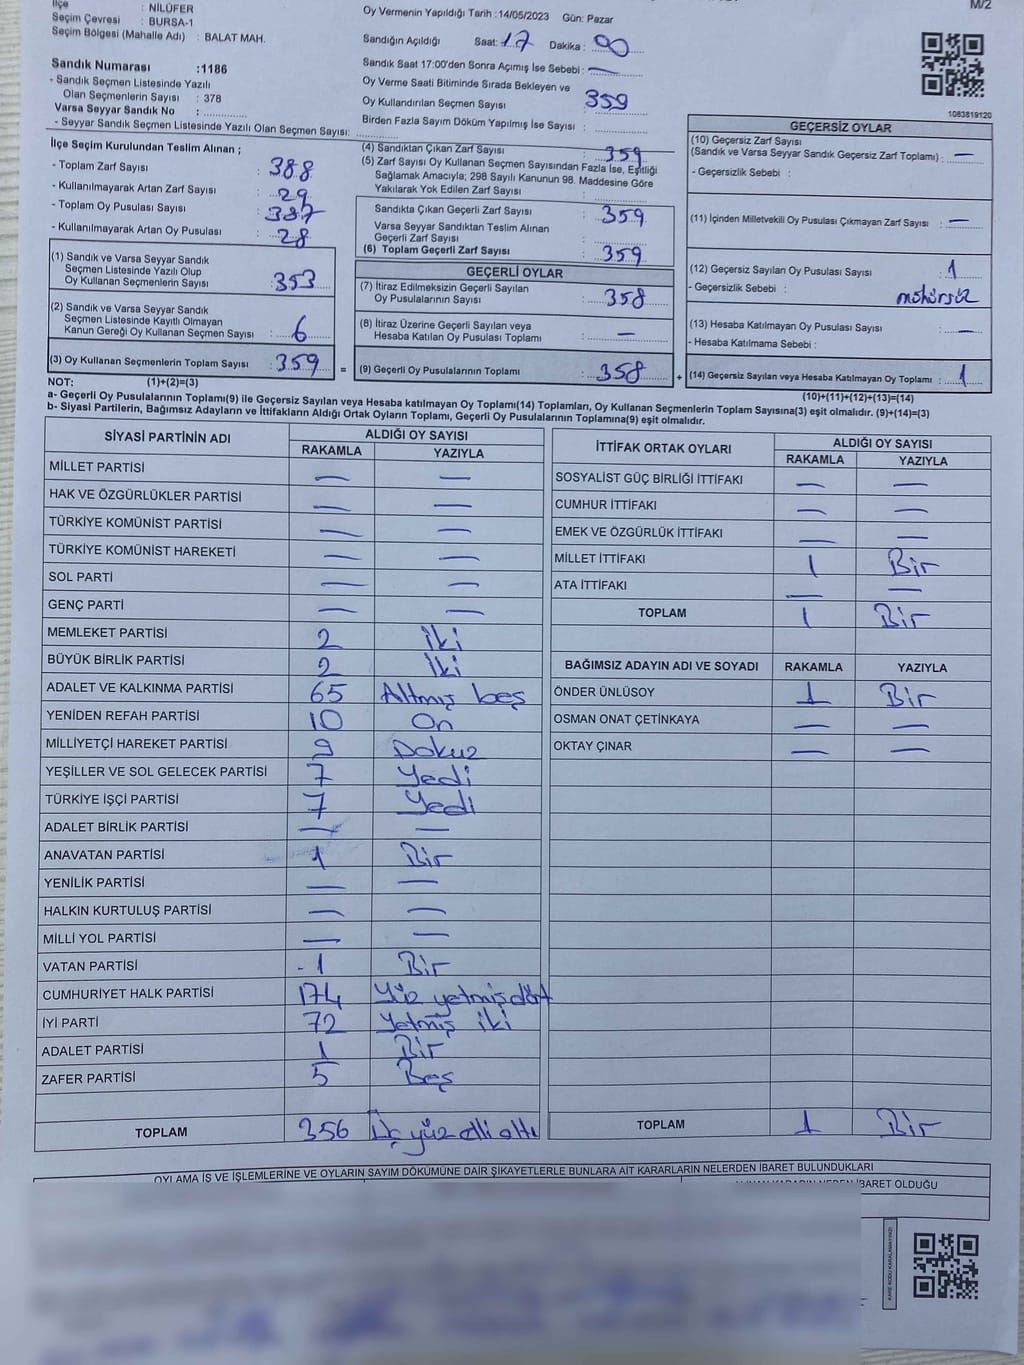 İlçe : NİLÜFER
Seçim Çevresi : BURSA-1
Seçim Bölgesi (Mahalle Adı) : BALAT MAH.
Oy Vermenin Yapıldığı Tarih :14/05/2023 Gün: Pazar
M/2
Sandığın Açıldığı Saat: 17 Dakika : 00
Sandık Saat 17:00'den Sonra Açılmış İse Sebebi : —
Sandık Numarası :1186
- Sandık Seçmen Listesinde Yazılı
Olan Seçmenlerin Sayısı : 378
Varsa Seyyar Sandık No :
- Seyyar Sandık Seçmen Listesinde Yazılı Olan Seçmen Sayısı:
Oy Verme Saati Bitiminde Sırada Bekleyen ve
Oy Kullandırılan Seçmen Sayısı : 359
Birden Fazla Sayım Döküm Yapılmış İse Sayısı :
1083819120
İlçe Seçim Kurulundan Teslim Alınan ;
- Toplam Zarf Sayısı : 388
- Kullanılmayarak Artan Zarf Sayısı : 29
- Toplam Oy Pusulası Sayısı : 387
- Kullanılmayarak Artan Oy Pusulası : 28
(1) Sandık ve Varsa Seyyar Sandık
Seçmen Listesinde Yazılı Olup
Oy Kullanan Seçmenlerin Sayısı : 353
(2) Sandık ve Varsa Seyyar Sandık
Seçmen Listesinde Kayıtlı Olmayan
Kanun Gereği Oy Kullanan Seçmen Sayısı : 6
(3) Oy Kullanan Seçmenlerin Toplam Sayısı : 359 =
(4) Sandıktan Çıkan Zarf Sayısı : 359
(5) Zarf Sayısı Oy Kullanan Seçmen Sayısından Fazla İse, Eşitliği
Sağlamak Amacıyla; 298 Sayılı Kanunun 98. Maddesine Göre
Yakılarak Yok Edilen Zarf Sayısı :
Sandıkta Çıkan Geçerli Zarf Sayısı : 359
Varsa Seyyar Sandıktan Teslim Alınan
Geçerli Zarf Sayısı :
(6) Toplam Geçerli Zarf Sayısı : 359
GEÇERLİ OYLAR
(7) İtiraz Edilmeksizin Geçerli Sayılan
Oy Pusulalarının Sayısı : 358
(8) İtiraz Üzerine Geçerli Sayılan veya
Hesaba Katılan Oy Pusulası Toplamı : —
(9) Geçerli Oy Pusulalarının Toplamı : 358 +
GEÇERSİZ OYLAR
(10) Geçersiz Zarf Sayısı
(Sandık ve Varsa Seyyar Sandık Geçersiz Zarf Toplamı) : —
- Geçersizlik Sebebi :
(11) İçinden Milletvekili Oy Pusulası Çıkmayan Zarf Sayısı : —
(12) Geçersiz Sayılan Oy Pusulası Sayısı : 1
- Geçersizlik Sebebi : mühürsüz
(13) Hesaba Katılmayan Oy Pusulası Sayısı : —
- Hesaba Katılmama Sebebi :
(14) Geçersiz Sayılan veya Hesaba Katılmayan Oy Toplamı : 1
NOT: (1)+(2)=(3) (10)+(11)+(12)+(13)=(14)
a- Geçerli Oy Pusulalarının Toplamı(9) ile Geçersiz Sayılan veya Hesaba Katılmayan Oy Toplamı(14) Toplamları, Oy Kullanan Seçmenlerin Toplam Sayısına(3) eşit olmalıdır. (9)+(14)=(3)
b- Siyasi Partilerin, Bağımsız Adayların ve İttifakların Aldığı Ortak Oyların Toplamı, Geçerli Oy Pusulalarının Toplamına(9) eşit olmalıdır.
SİYASİ PARTİNİN ADI ALDIĞI OY SAYISI
RAKAMLA YAZIYLA
MİLLET PARTİSİ — —
HAK VE ÖZGÜRLÜKLER PARTİSİ — —
TÜRKİYE KOMÜNİST PARTİSİ — —
TÜRKİYE KOMÜNİST HAREKETİ — —
SOL PARTİ — —
GENÇ PARTİ — —
MEMLEKET PARTİSİ 2 iki
BÜYÜK BİRLİK PARTİSİ 2 iki
ADALET VE KALKINMA PARTİSİ 65 Altmış beş
YENİDEN REFAH PARTİSİ 10 On
MİLLİYETÇİ HAREKET PARTİSİ 9 Dokuz
YEŞİLLER VE SOL GELECEK PARTİSİ 7 Yedi
TÜRKİYE İŞÇİ PARTİSİ 7 Yedi
ADALET BİRLİK PARTİSİ — —
ANAVATAN PARTİSİ 1 Bir
YENİLİK PARTİSİ — —
HALKIN KURTULUŞ PARTİSİ — —
MİLLİ YOL PARTİSİ — —
VATAN PARTİSİ 1 Bir
CUMHURİYET HALK PARTİSİ 174 Yüz yetmiş dört
İYİ PARTİ 72 Yetmiş iki
ADALET PARTİSİ 1 Bir
ZAFER PARTİSİ 5 Beş
TOPLAM 356 Üç yüz elli altı
İTTİFAK ORTAK OYLARI ALDIĞI OY SAYISI
RAKAMLA YAZIYLA
SOSYALİST GÜÇ BİRLİĞİ İTTİFAKI — —
CUMHUR İTTİFAKI — —
EMEK VE ÖZGÜRLÜK İTTİFAKI — —
MİLLET İTTİFAKI 1 Bir
ATA İTTİFAKI — —
TOPLAM 1 Bir
BAĞIMSIZ ADAYIN ADI VE SOYADI RAKAMLA YAZIYLA
ÖNDER ÜNLÜSOY 1 Bir
OSMAN ONAT ÇETİNKAYA — —
OKTAY ÇINAR — —
TOPLAM 1 Bir
OYLAMA İŞ VE İŞLEMLERİNE VE OYLARIN SAYIM DÖKÜMÜNE DAİR ŞİKAYETLERLE BUNLARA AİT KARARLARIN NELERDEN İBARET BULUNDUKLARI
İBARET OLDUĞU
KARE KODU KARALAMAYINIZ!